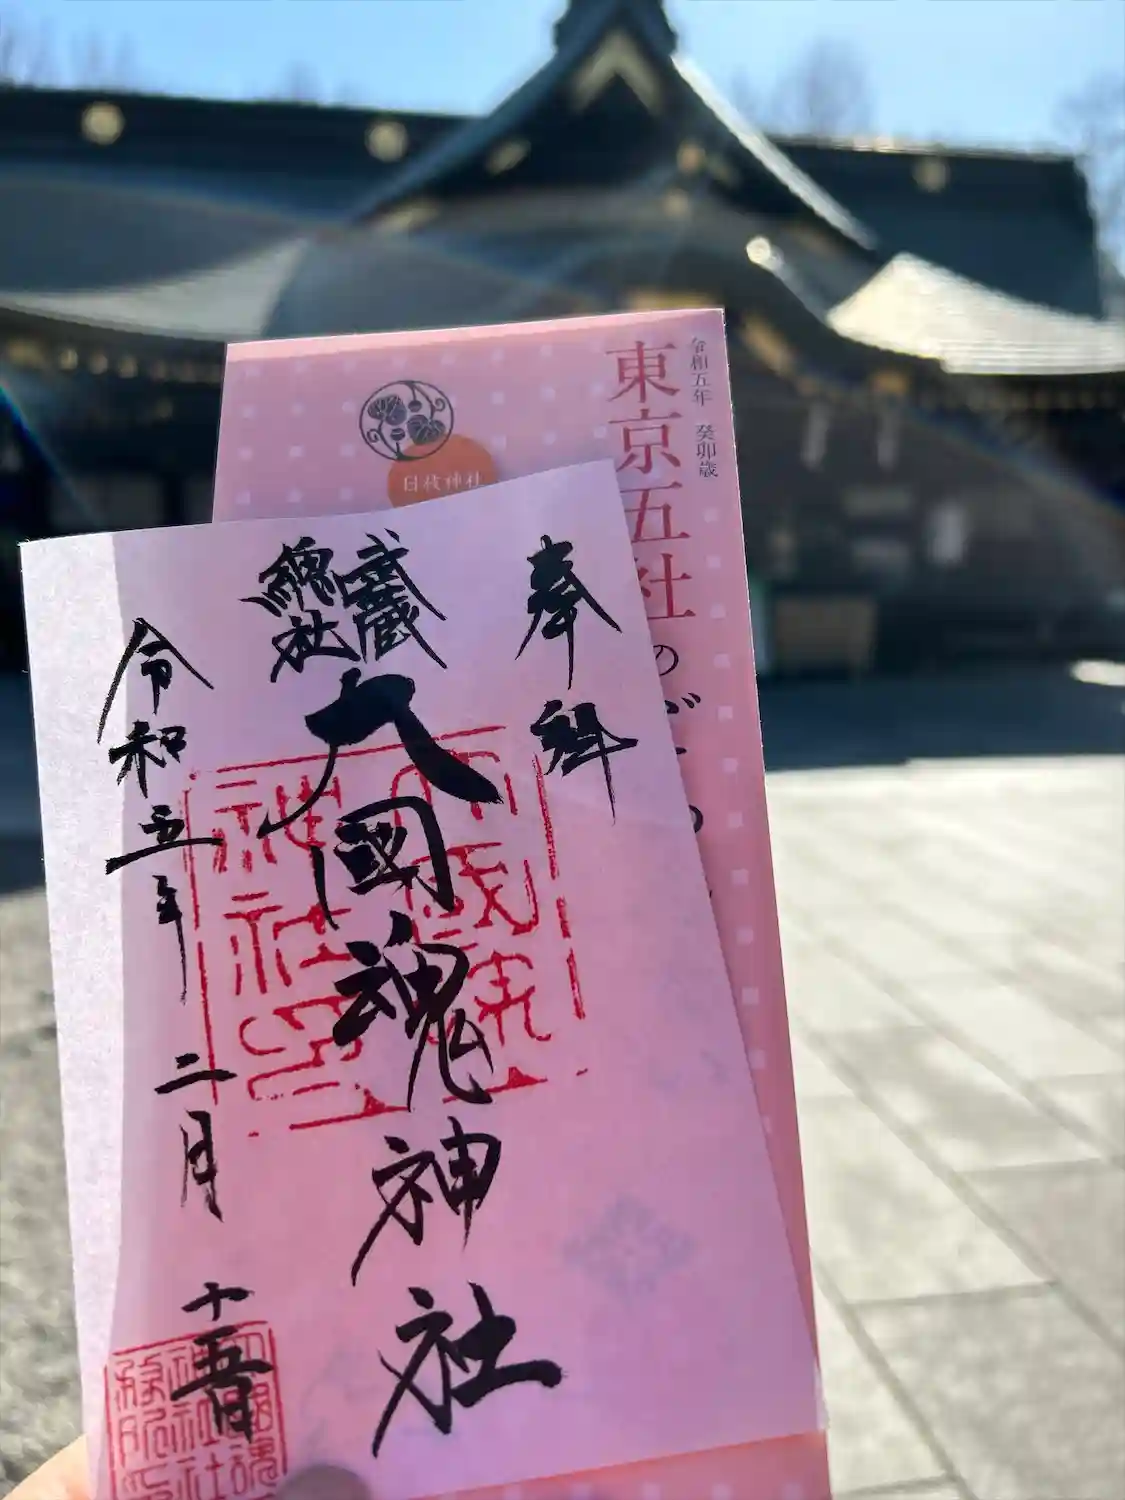 令和五年 癸卯歳
東京五社の
日枝神社
奉拝
武蔵
總社
大國魂神社
令和五年 二月 十五日